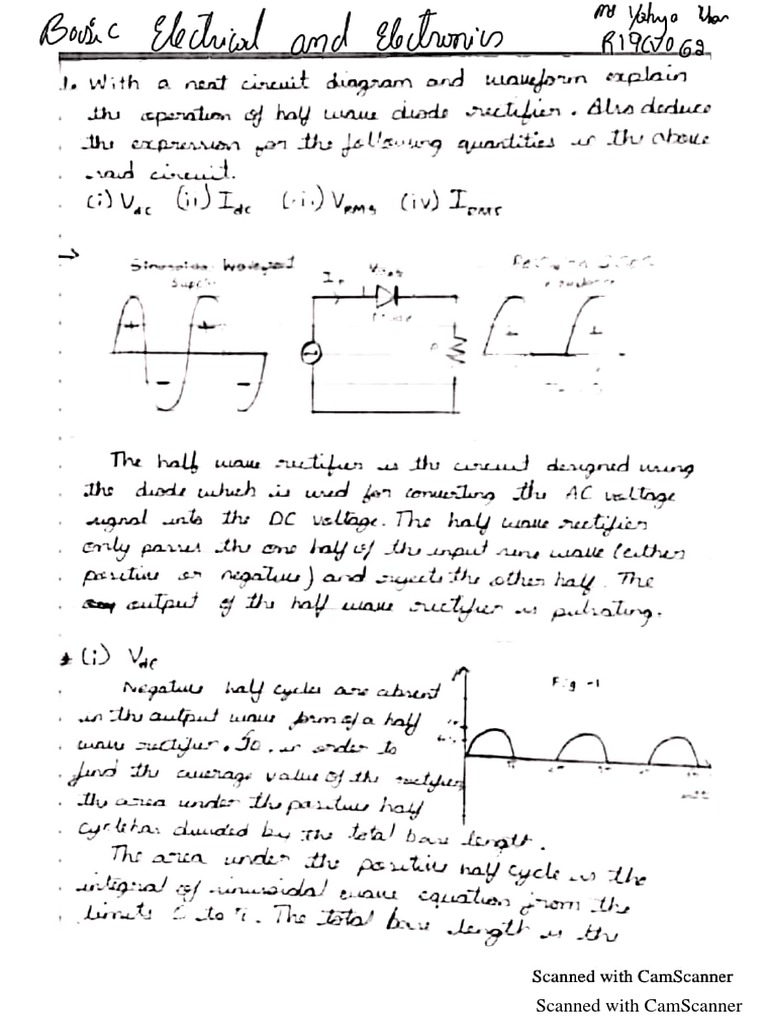 Basic Electrical and Electronics
Md Yahya Khan
R19CV062
1. With a neat circuit diagram and waveform explain
the operation of half wave diode rectifier. Also deduce
the expression for the following quantities in the above
said circuit.
(i) Vdc (ii) Idc (iii) VRMS (iv) IRMS
→
Sinusoidal
Supply
I
+ +
- -
The half wave rectifier is the circuit designed using
the diode which is used for converting the AC voltage
signal into the DC voltage. The half wave rectifier
only passes the one half of the input sine wave (either
positive or negative) and rejects the other half. The
output of the half wave rectifier is pulsating.
* (i) Vdc
Negative half cycles are absent
in the output wave form of a half
wave rectifier. So, in order to
find the average value of the rectifier
the area under the positive half
cycle has divided by the total base length.
Fig -1
The area under the positive half cycle is the
integral of sinusoidal wave equation from the
limits to π. The total base length is the
Scanned with CamScanner
Scanned with CamScanner